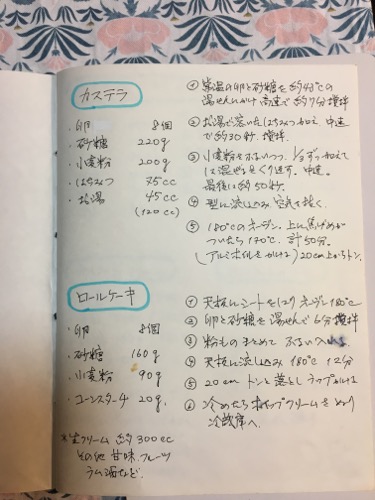 カステラ
・卵 8個
・砂糖 220g
・小麦粉 200g
・はちみつ 75cc
・お湯 45cc
(120cc)
① 常温の卵と砂糖を約43℃の
湯せんにかけ高速で約7分撹拌
② お湯で溶いたはちみつ加え、中速
で約30秒 撹拌
③ 小麦粉をふるいつつ、1/3ずつ加えて
は混ぜをくり返す。中速。
最後に約50秒。
④ 型に流し込み 空気を抜く。
⑤ 180℃のオーブン。上に焦げめが
ついたら170℃. 計50分。
(アルミホイルをかける) 20cm上からトン
ロールケーキ
・卵 8個
・砂糖 160g
・小麦粉 90g
・コーンスターチ 20g.
*生クリーム 約300cc
その他 甘味、フルーツ
ラム酒など.
① 天板にシートをしき オーブン180℃
② 卵と砂糖を湯せんで6分撹拌
③ 粉ものまとめて ふるい入れる
④ 天板に流し込み 180℃ 12分
⑤ 20cm トンと落とし ラップかける
⑥ 冷めたら クリームをぬり
冷蔵庫へ.